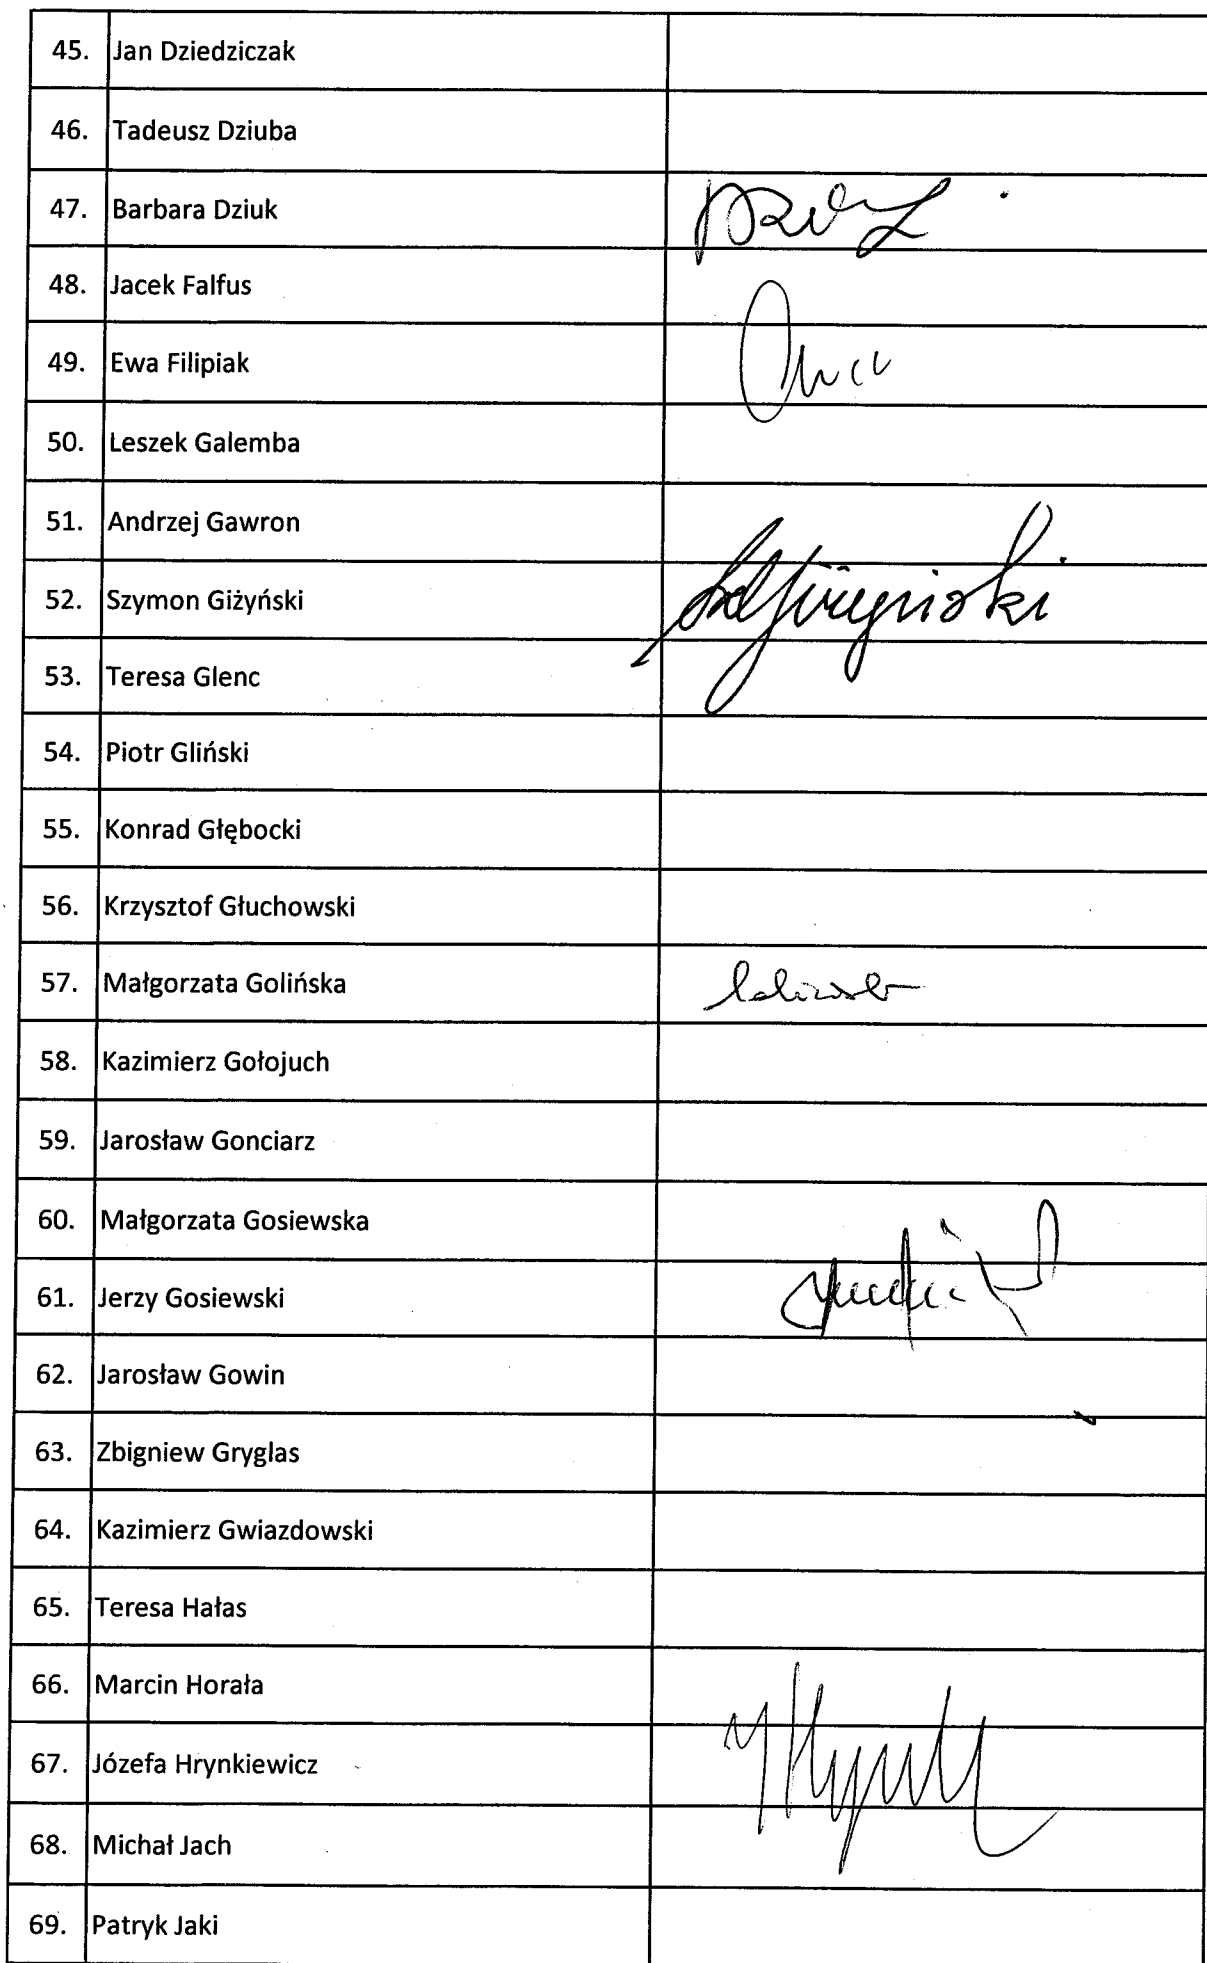 45. Jan Dziedziczak
46. Tadeusz Dziuba
47. Barbara Dziuk
48. Jacek Falfus
49. Ewa Filipiak
50. Leszek Galemba
51. Andrzej Gawron
52. Szymon Giżyński
53. Teresa Glenc
54. Piotr Gliński
55. Konrad Głębocki
56. Krzysztof Głuchowski
57. Małgorzata Golińska
58. Kazimierz Gołojuch
59. Jarosław Gonciarz
60. Małgorzata Gosiewska
61. Jerzy Gosiewski
62. Jarosław Gowin
63. Zbigniew Gryglas
64. Kazimierz Gwiazdowski
65. Teresa Hałas
66. Marcin Horała
67. Józefa Hrynkiewicz
68. Michał Jach
69. Patryk Jaki